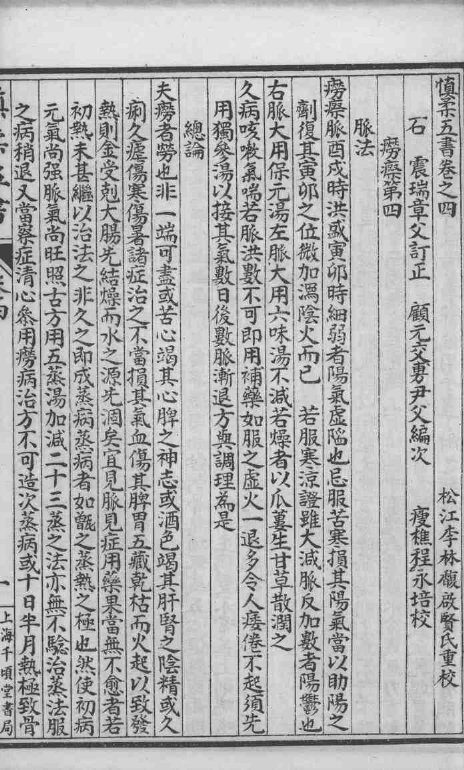 慎柔五書卷之四
石　震瑞章父訂正　顧元交男尹父編次　松江李林馥啟賢氏重校
瘦樵程永培校
癆瘵第四
脈法
癆瘵脈酉戌時洪盛寅卯時細弱者陽氣虛陷也忌服苦寒損其陽氣當以助陽之
劑復其寅卯之位微加瀉陰火而已　若服寒涼證雖大減脈反加數者陽鬱也
右脈大用保元湯左脈大用六味湯不減若燥者以瓜蔞生甘草散潤之
久病咳嗽氣喘若脈洪數不可即用補藥如服之虛火一退多令人痿倦不起須先
用獨參湯以接其氣數日後數脈漸退方與調理為是
總論
夫癆者勞也非一端可盡或苦心竭其心脾之神志或酒色竭其肝腎之陰精或久
痢久瘧傷寒傷暑諸症治之不當損其氣血傷其脾胃五藏乾枯而火起以致發
熱則金受剋大腸先結燥而水之源先涸矣宜見脈見症用藥果當無不愈者若
初熱未甚繼以治法之非久之即成蒸病蒸病者如甑之蒸熱之極也然使初病
元氣尚强脈氣尚旺照古方用五蒸湯加減二十三蒸之法亦無不驗治蒸法服
之病稍退又當察症清心參用癆病治方不可造次蒸病或十日半月熱極致骨
慎柔五書
卷四
一
上海千頃堂書局